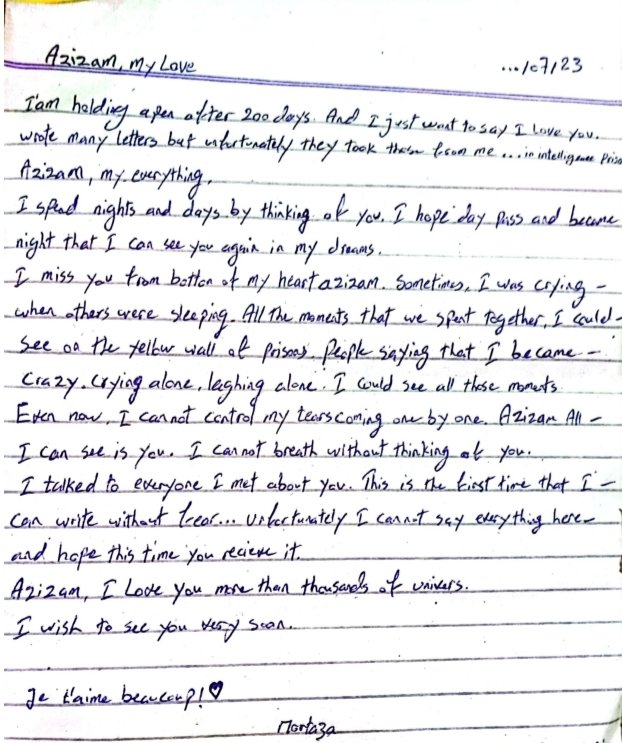 Azizam, my Love
.../07/23
I'am holding a pen after 200 days. And I just want to say I love you.
wrote many letters but unfortunately they took them from me ... in intelligence Priso
Azizam, my everything,
I spend nights and days by thinking of you. I hope day pass and became
night that I can see you again in my dreams.
I miss you from botton of my heart azizam. Sometimes, I was crying -
when others were sleeping. All the moments that we spent together, I could -
see on the yellow wall of prisons. People saying that I became -
crazy, crying alone, laghing alone. I could see all those moments.
Even now, I cannot control my tears coming one by one. Azizam All -
I can see is you. I cannot breath without thinking of you.
I talked to everyone I met about you. This is the first time that I -
can write without fear... Unfortunately I cannot say everything here -
and hope this time you recieve it.
Azizam, I Love you more than thousands of univers.
I wish to see you very soon.
Je t'aime beaucoup! ♡
Mortaza